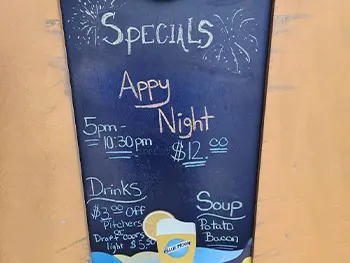 SPECIALS
Appy
Night
5pm-
10:30pm
$12.00
Drinks
$3.00 Off
Pitchers
of
Draft Coors
light $5.50
Soup
Potato
Bacon
BLUE MOON